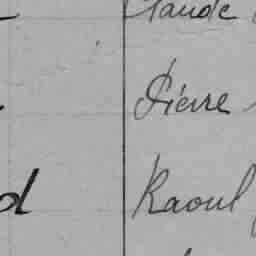 Claude
Pierre
d Raoul